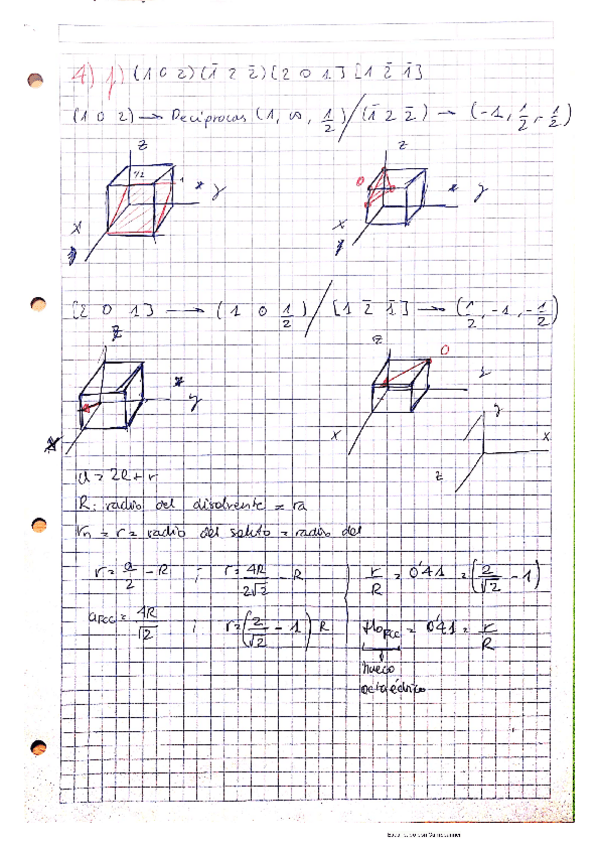 4) 1) (1 0 2̄) (1̄ 2 2̄) [2 0 1] [1 2̄ 1̄]
(1 0 2) → Recíprocas (1, ∞, 1/2) / (1̄ 2 2̄) → (-1, 1/2, -1/2)
z z
1/2 1 y 0 y
x x
[2 0 1] → (1 0 1/2) / [1 2̄ 1̄] → (1/2, -1, -1/2)
z z 0
y y
x x
y x
z
a = 2R + r
R: radio del disolvente = ra
rn = r = radio del soluto = radio del
r = a/2 - R ; r = 4R/2√2 - R r/R = 0'41 = (2/√2 - 1)
aFCC = 4R/√2 ; r = (2/√2 - 1) R HoFCC = 0'41 = r/R
hueco
octaédrico